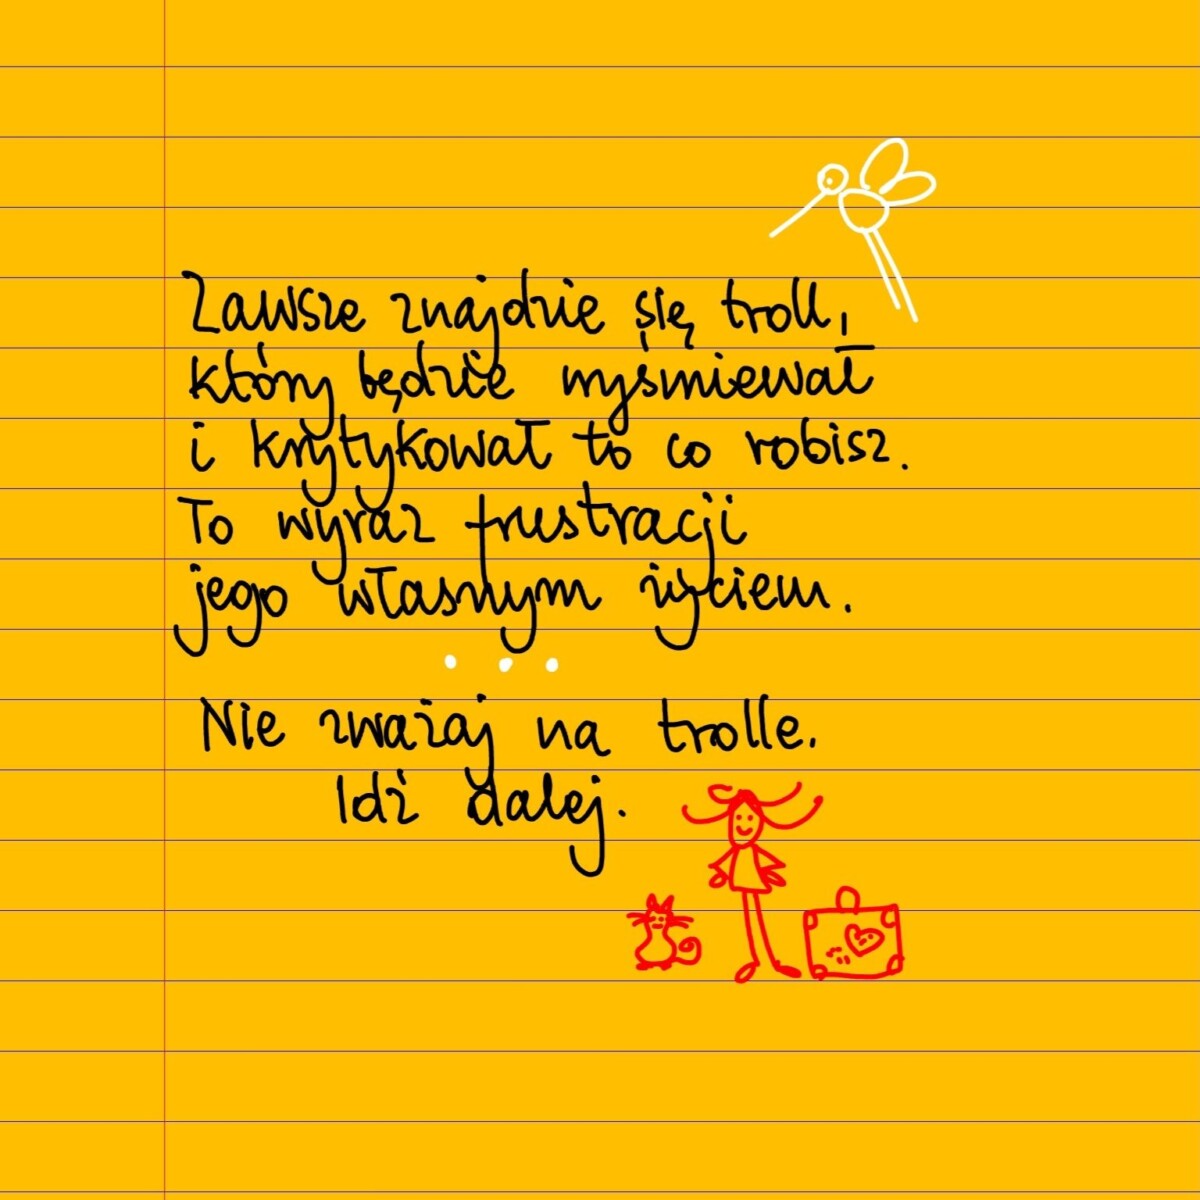 Zawsze znajdzie się troll,
który będzie wyśmiewał
i krytykował to co robisz.
To wyraz frustracji
jego własnym życiem.
...
Nie zważaj na trolle.
Idź dalej.